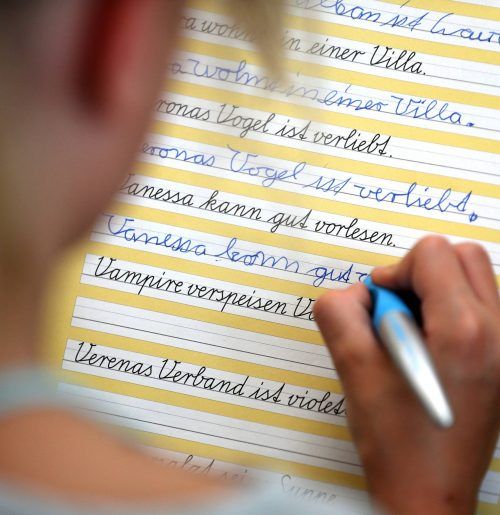 ist
wohnt in einer Villa.
wohnt in einer Villa.
Vogel ist verliebt.
Vogel ist verliebt.
Vanessa kann gut vorlesen.
Vanessa kann gut
Vampire verspeisen
Verenas Verband ist violett